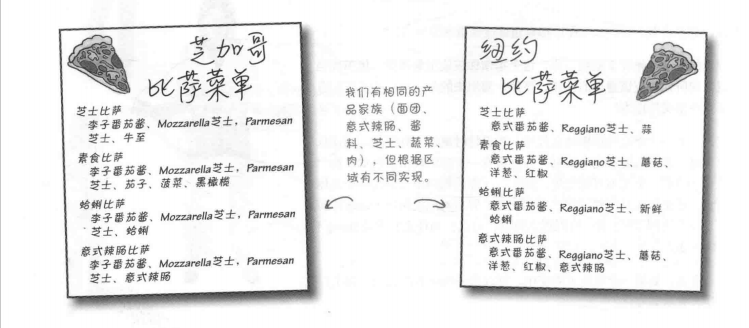 芝加哥
比萨菜单
芝士比萨
李子番茄酱、Mozzarella芝士，Parmesan
芝士、牛至
素食比萨
李子番茄酱、Mozzarella芝士，Parmesan
芝士、茄子、菠菜、黑橄榄
蛤蜊比萨
李子番茄酱、Mozzarella芝士，Parmesan
芝士、蛤蜊
意式辣肠比萨
李子番茄酱、Mozzarella芝士，Parmesan
芝士、意式辣肠
我们有相同的产
品家族（面团、
意式辣肠、酱
料、芝士、蔬菜、
肉），但根据区
域有不同实现。
纽约
比萨菜单
芝士比萨
意式番茄酱、Reggiano芝士、蒜
素食比萨
意式番茄酱、Reggiano芝士、蘑菇、
洋葱、红椒
蛤蜊比萨
意式番茄酱、Reggiano芝士、新鲜
蛤蜊
意式辣肠比萨
意式番茄酱、Reggiano芝士、蘑菇、
洋葱、红椒、意式辣肠